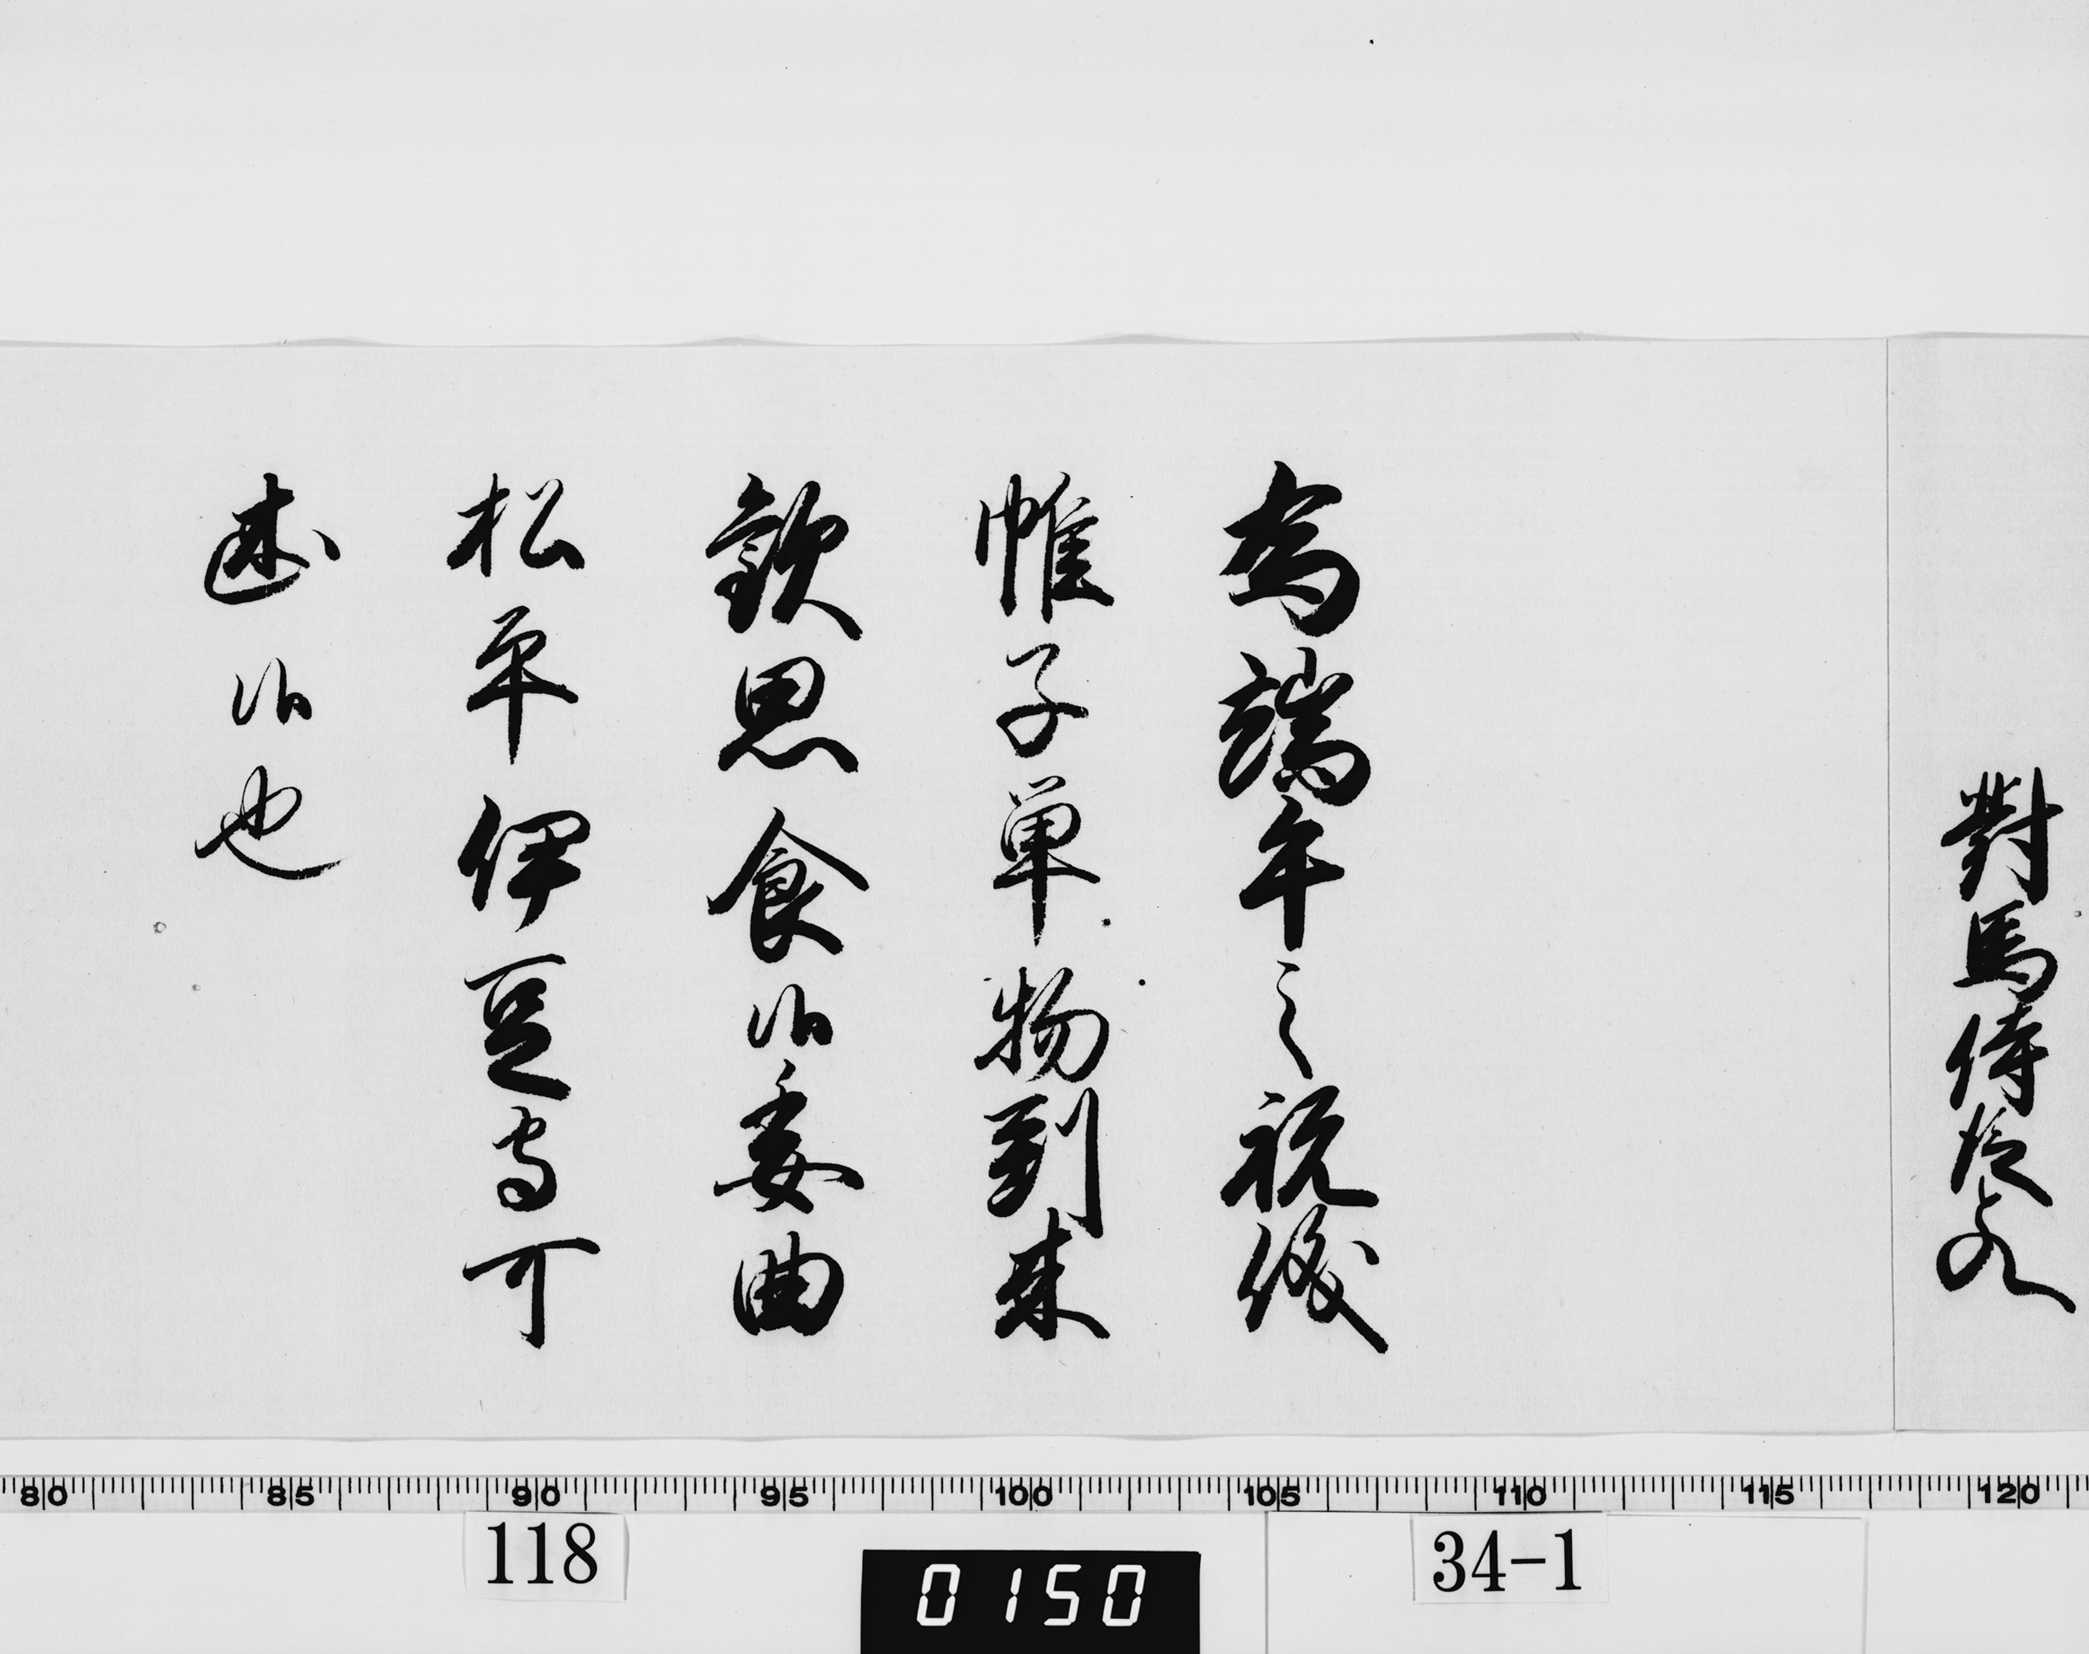 對馬侍従とのへ
為端午之祝儀
帷子単物到来
歓思食候委曲
松平伊豆守可
述候也
80 85 90 95 100 105 110 115 120
118
0150
34-1